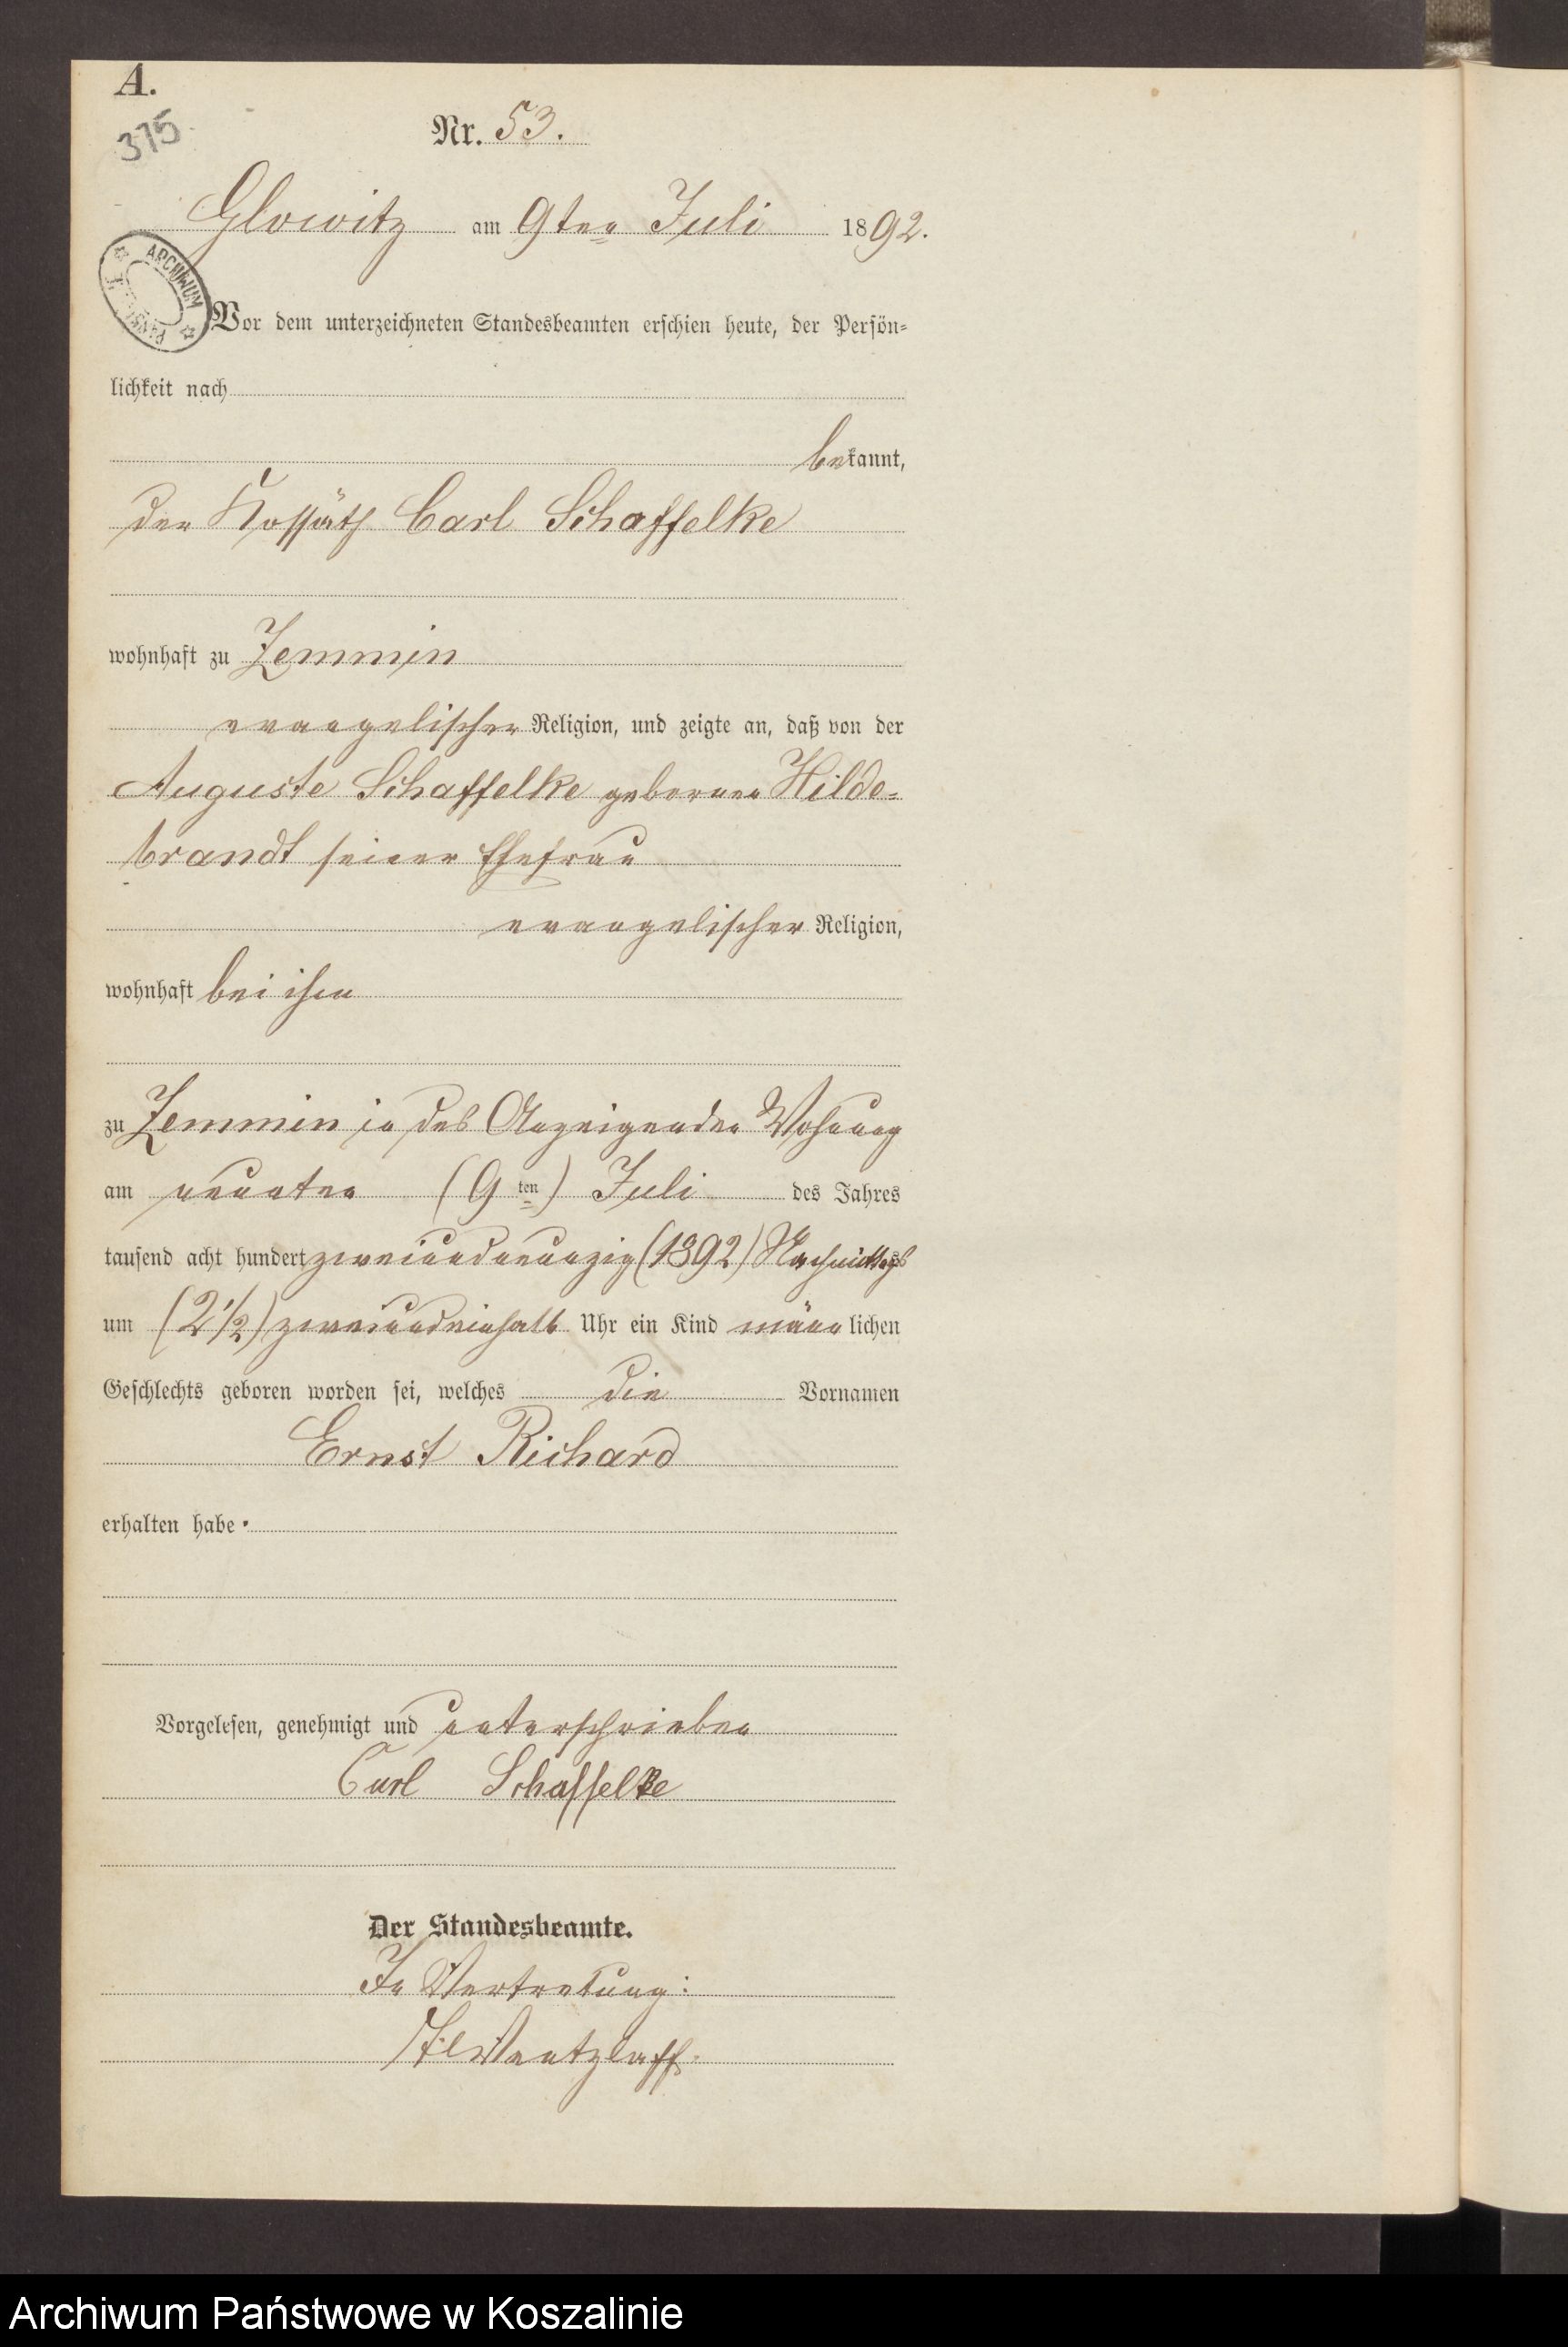 A.
375
Nr. 53.
Glowitz am 9ten Juli 1892.
ARCHIWUM
Vor dem unterzeichneten Standesbeamten erschien heute, der Persön-
lichkeit nach
bekannt,
der Kossäth Carl Schaffelke
wohnhaft zu Zemmin
evangelischer Religion, und zeigte an, daß von der
Auguste Schaffelke gebornen Hilde-
brandt seiner Ehefrau
evangelischer Religion,
wohnhaft bei ihm
zu Zemmin in des Anzeigenden Wohnung
am neunten (9ten) Juli des Jahres
tausend acht hundert zweiundneunzig (1892) Nachmittags
um (2 1/2) zweiundeinhalb Uhr ein Kind männlichen
Geschlechts geboren worden sei, welches die Vornamen
Ernst Richard
erhalten habe.
Vorgelesen, genehmigt und unterschrieben
Carl Schaffelke
Der Standesbeamte.
In Vertretung:
Wentzlaff.
Archiwum Państwowe w Koszalinie